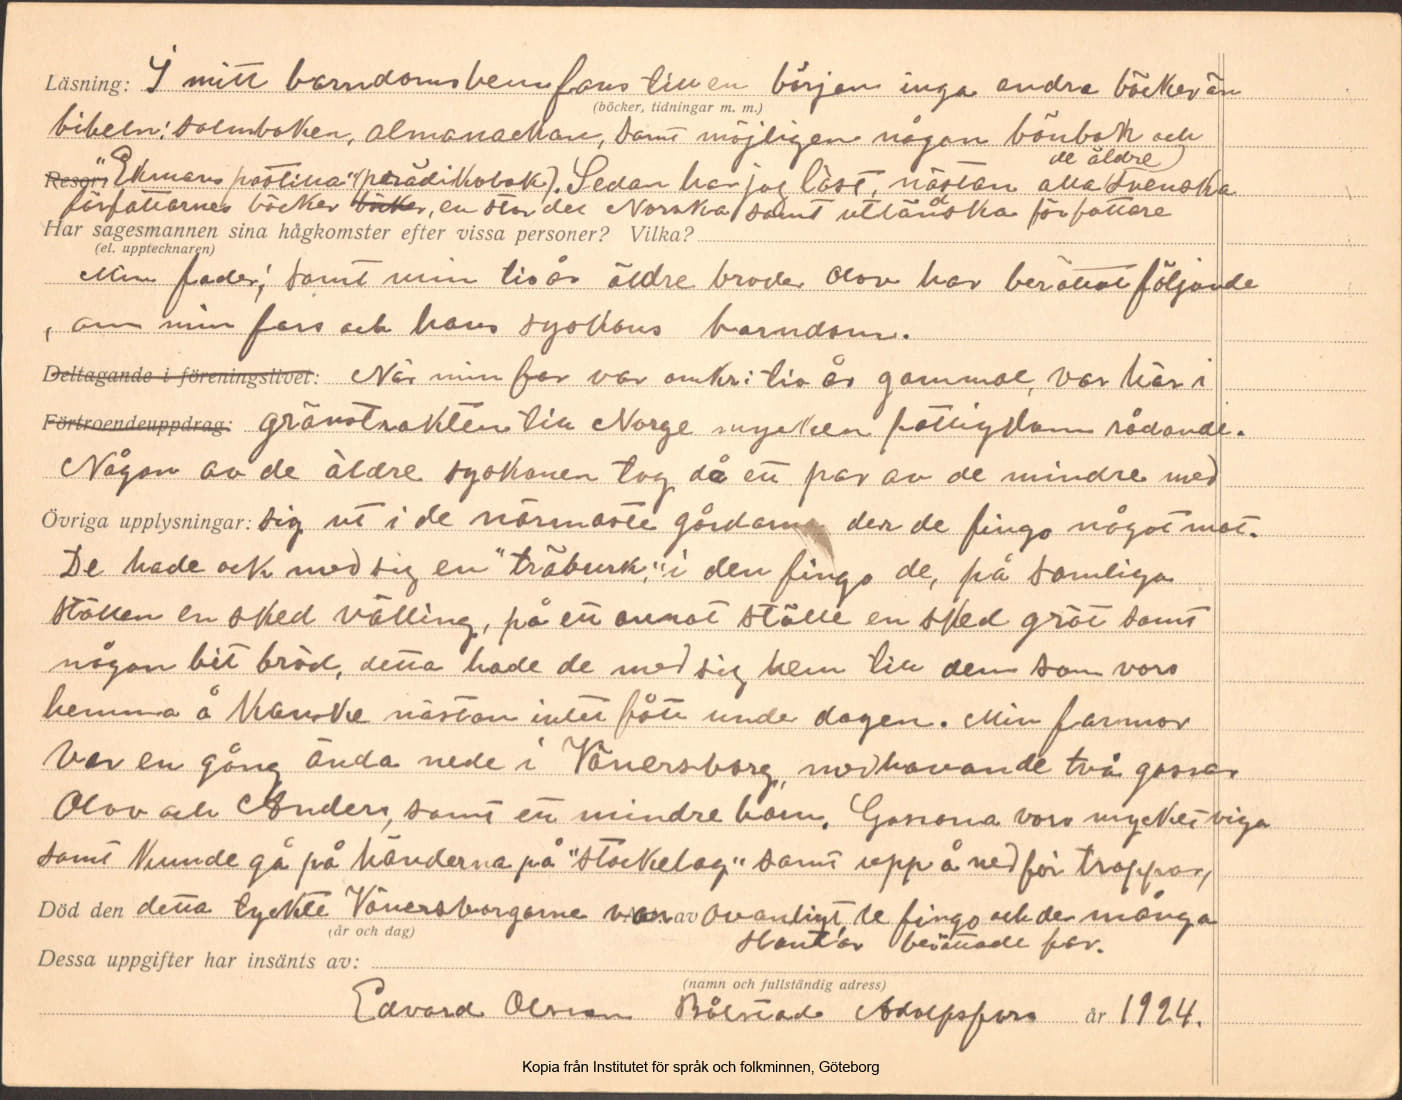 Läsning: I mitt barndomshem fans till en början inga andra böcker än
(böcker, tidningar m. m.)
bibeln, salmboken, almanackan, samt möjligen någon bönbok och
de äldre
Resor: "Ekmans postilla" (predikobok). Sedan har jag läst, nästan alla svenska
författarnes böcker böcker, en stor del Norska samt utländska författare
Har sagesmannen sina hågkomster efter vissa personer? Vilka?
(el. upptecknaren)
Min fader, samt min tio år äldre broder Olov har berättat följande
, om min fars och hans syskons barndom.
Deltagande i föreningslivet: När min far var omkr: tio år gammal, var här i
Förtroendeuppdrag: gränstrakten till Norge mycken fattigdom rådande.
Någon av de äldre syskonen tog då ett par av de mindre med
Övriga upplysningar: sig ut i de närmaste gårdarna der de fingo något mat.
De hade ock med sig en "träburk," i den fingo de, på somliga
ställen en sked välling, på ett annat ställe en sked gröt samt
någon bit bröd, detta hade de med sig hem till dem som voro
hemma å kanske nästan intet fått under dagen. Min farmor
var en gång ända nede i Vänersborg, medhavande två gossar
Olov och Anders, samt ett mindre barn. Gossarna voro mycket viga
samt kunde gå på händerna på "stockelag" samt upp å nedför trappor,
Död den detta tyckte Vänersborgarne var av ovanligt, de fingo ock de många
(år och dag)
slantar berättade far.
Dessa uppgifter har insänts av:
(namn och fullständig adress)
Edvard Olsson Bålstad Adolfsfors år 1924.
Kopia från Institutet för språk och folkminnen, Göteborg